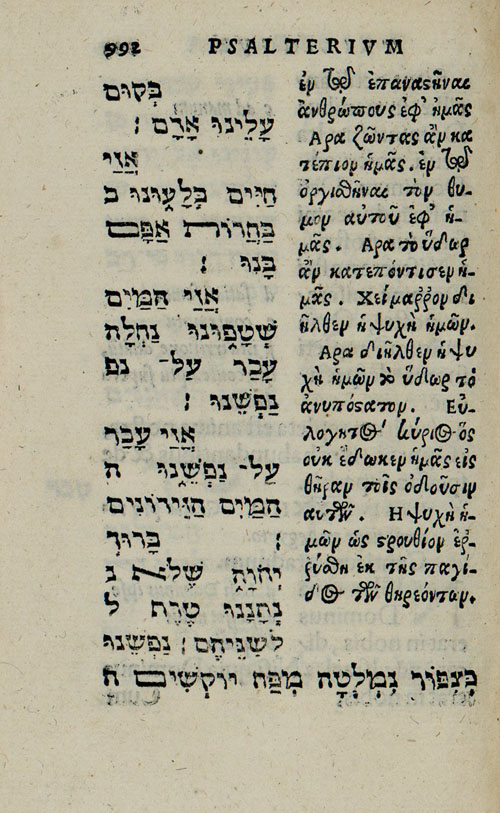 992 PSALTERIVM
בְּקוּם
עָלֵינוּ אָדָם :
אֲזַי
חַיִּים בְּלָעוּנוּ ב
בַּחֲרוֹת אַפָּם
בָּנוּ :
אֲזַי הַמַּיִם
שְׁטָפוּנוּ נַחְלָה
עָבַר עַל־ נפ
נַפְשֵׁנוּ :
אֲזַי עָבַר
עַל־ נַפְשֵׁנוּ ה
הַמַּיִם הַזֵּידוֹנִים
: בָּרוּךְ
יְהוָה שֶׁלֹּא נ
נְתָנָנוּ טֶרֶף ל
לְשִׁנֵּיהֶם : נַפְשֵׁנוּ
כְּצִפּוֹר נִמְלְטָה מִפַּח יוֹקְשִׁים ה
ἐν τῷ ἐπαναϛῆναι
ἀνθρώπους ἐφ᾽ ἡμᾶς
Αρα ζῶντας ἂν κα
τέπιον ἡμᾶς. ἐν τῷ
ὀργισθῆναι τὸν θυ-
μὸν αὐτοῦ ἐφ᾽ ἡ-
μᾶς. Αρα τὸ ὕδωρ
ἂν κατεπόντισεν ἡ-
μᾶς. Χείμαῤῥον δι
ῆλθεν ἡ ψυχὴ ἡμῶν.
Αρα διῆλθεν ἡ ψυ
χὴ ἡμῶν τὸ ὕδωρ τὸ
ἀνυπόϛατον. Εὐ-
λογητὸς κύριος ὃς
οὐκ ἔδωκεν ἡμᾶς εἰς
θήραν τοῖς ὀδοῦσιν
αυτῶν. Η ψυχὴ ἡ-
μῶν ὡς ϛρουθίον ἐρ-
ῥύσθη ἐκ τῆς παγί-
δος τῶν θηρεόντων.